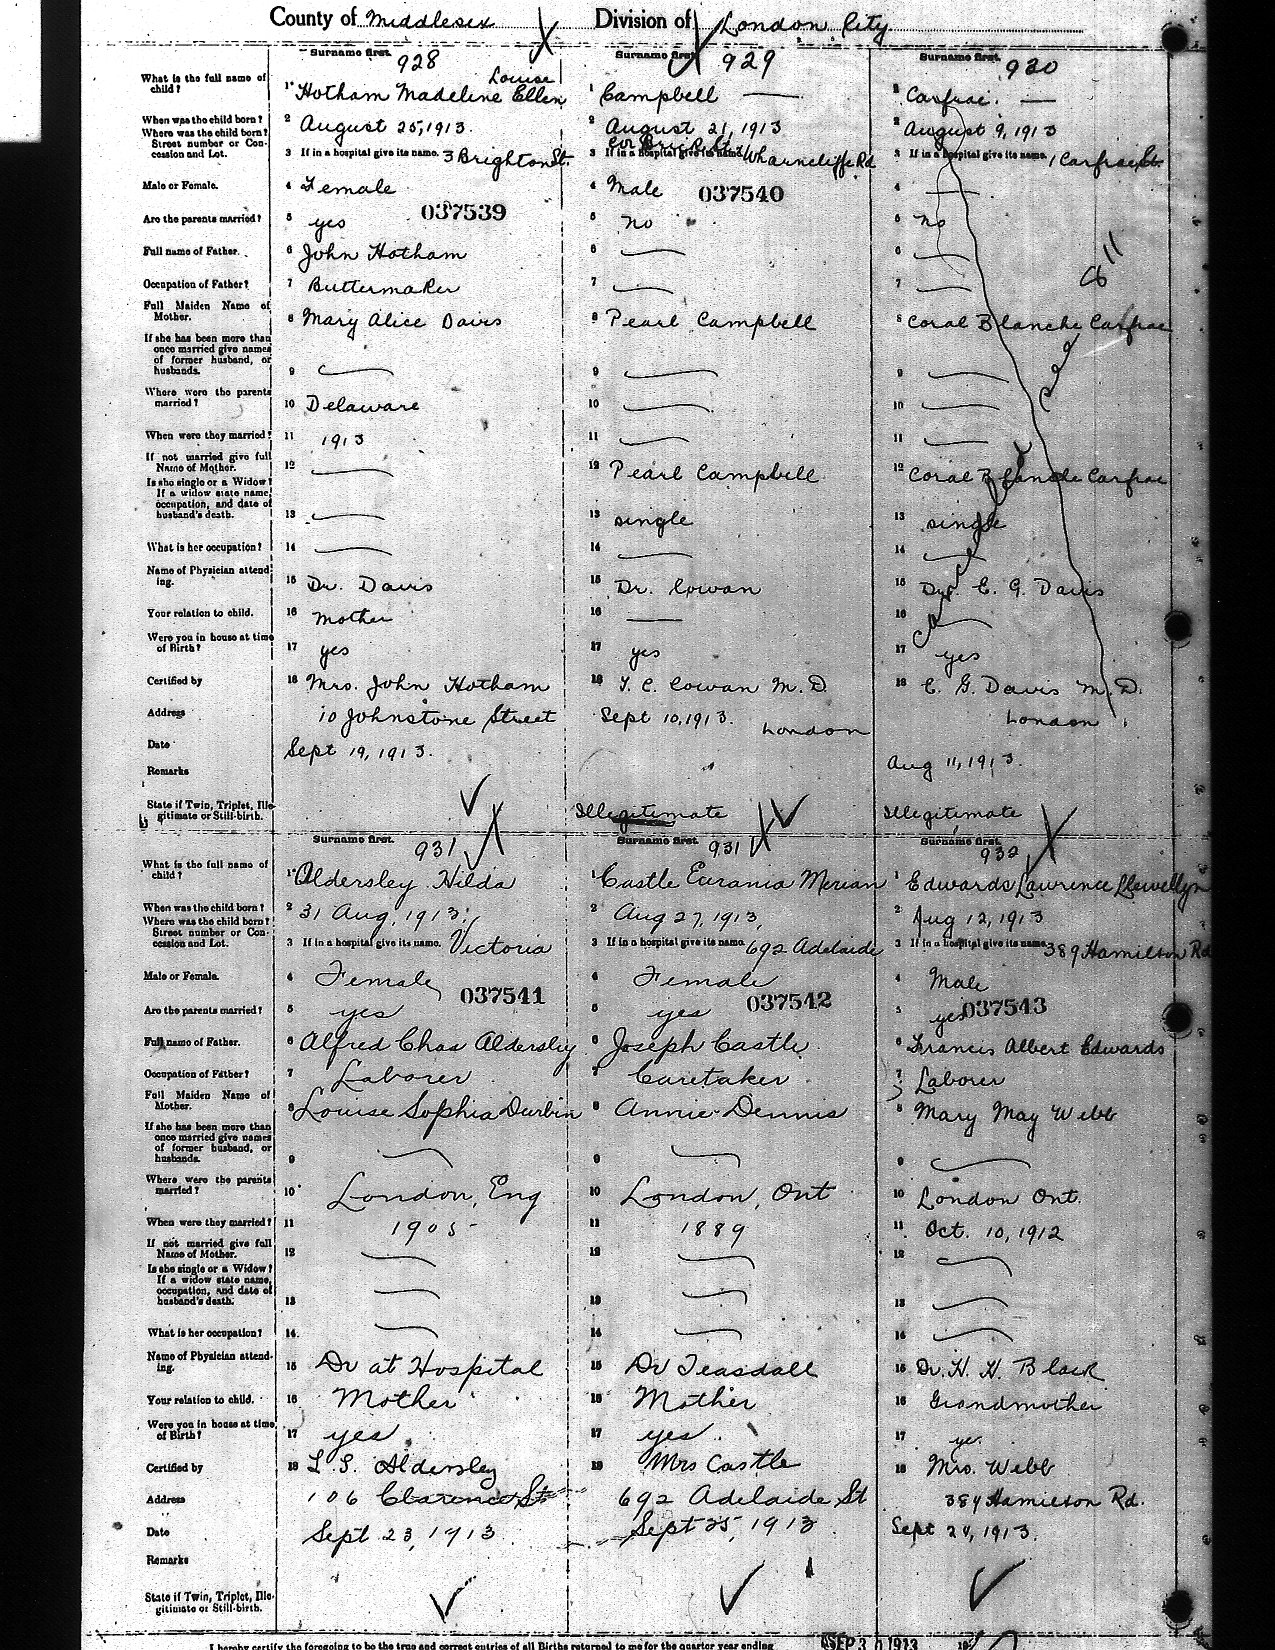 County of Middlesex Division of London City
Surname first. 928 Surname first. 929 Surname first. 930
What is the full name of child? 1 Hotham Madeline Ellen Louise 1 Campbell — 1 Carfrae. —
When was the child born? 2 August 25, 1913. 2 August 21, 1913 2 August 9, 1913
Where was the child born? Street number or Concession and Lot. 3 If in a hospital give its name. 3 Brighton St. 3 If in a hospital give its name. Cor Wharncliffe Rd 3 If in a hospital give its name. 1 Carfrae St
Male or Female. 4 Female 4 Male 4 —
037539 037540
Are the parents married? 5 yes 5 no 5 no
Full name of Father. 6 John Hotham 6 — 6 —
Occupation of Father? 7 Buttermaker 7 — 7 —
Full Maiden Name of Mother. 8 Mary Alice Davis 8 Pearl Campbell 8 Coral Blanche Carfrae
If she has been more than once married give names of former husband, or husbands. 9 — 9 — 9 —
Where were the parents married? 10 Delaware 10 — 10 —
When were they married? 11 1913 11 — 11 —
If not married give full Name of Mother. 12 — 12 Pearl Campbell 12 Coral Blanche Carfrae
Is she single or a Widow? If a widow state name, occupation, and date of husband's death. 13 — 13 single 13 single
What is her occupation? 14 — 14 — 14 —
Name of Physician attending. 15 Dr. Davis 15 Dr. Cowan 15 Dr. C. G. Davis
Your relation to child. 16 Mother 16 — 16 —
Were you in house at time of Birth? 17 yes 17 yes 17 yes
Certified by 18 Mrs. John Hotham 18 T. C. Cowan M.D. 18 C. G. Davis M.D.
Address 10 Johnstone Street London London
Date Sept 19, 1913. Sept 10, 1913. Aug 11, 1913.
Remarks
State if Twin, Triplet, Illegitimate or Still-birth. Illegitimate Illegitimate
Surname first. 931 Surname first. 931 Surname first. 932
What is the full name of child? 1 Aldersley Hilda 1 Castle Eurania Merian 1 Edwards Lawrence Llewellyn
When was the child born? 2 31 Aug, 1913. 2 Aug 27, 1913, 2 Aug 12, 1913
Where was the child born? Street number or Concession and Lot. 3 If in a hospital give its name. Victoria 3 If in a hospital give its name. 692 Adelaide 3 If in a hospital give its name. 389 Hamilton Rd
Male or Female. 4 Female 4 Female 4 Male
037541 037542 037543
Are the parents married? 5 yes 5 yes 5 yes
Full name of Father. 6 Alfred Chas Aldersley 6 Joseph Castle 6 Francis Albert Edwards
Occupation of Father? 7 Laborer 7 Caretaker 7 Laborer
Full Maiden Name of Mother. 8 Louise Sophia Durbin 8 Annie Dennis 8 Mary May Webb
If she has been more than once married give names of former husband, or husbands. 9 — 9 — 9 —
Where were the parents married? 10 London, Eng 10 London, Ont 10 London Ont.
When were they married? 11 1905 11 1889 11 Oct. 10, 1912
If not married give full Name of Mother. 12 — 12 — 12 —
Is she single or a Widow? If a widow state name, occupation, and date of husband's death. 13 — 13 — 13 —
What is her occupation? 14 — 14 — 14 —
Name of Physician attending. 15 Dr at Hospital 15 Dr Teasdall 15 Dr. H. H. Black
Your relation to child. 16 Mother 16 Mother 16 Grandmother
Were you in house at time of Birth? 17 yes 17 yes 17 yes
Certified by 18 L. S. Aldersley 18 Mrs Castle 18 Mrs. Webb
Address 106 Clarence St 692 Adelaide St 389 Hamilton Rd.
Date Sept 23, 1913 Sept 25, 1913 Sept 24, 1913.
Remarks
State if Twin, Triplet, Illegitimate or Still-birth.
I hereby certify the foregoing to be the true and correct entries of all Births returned to me for the quarter year ending SEP 30 1913